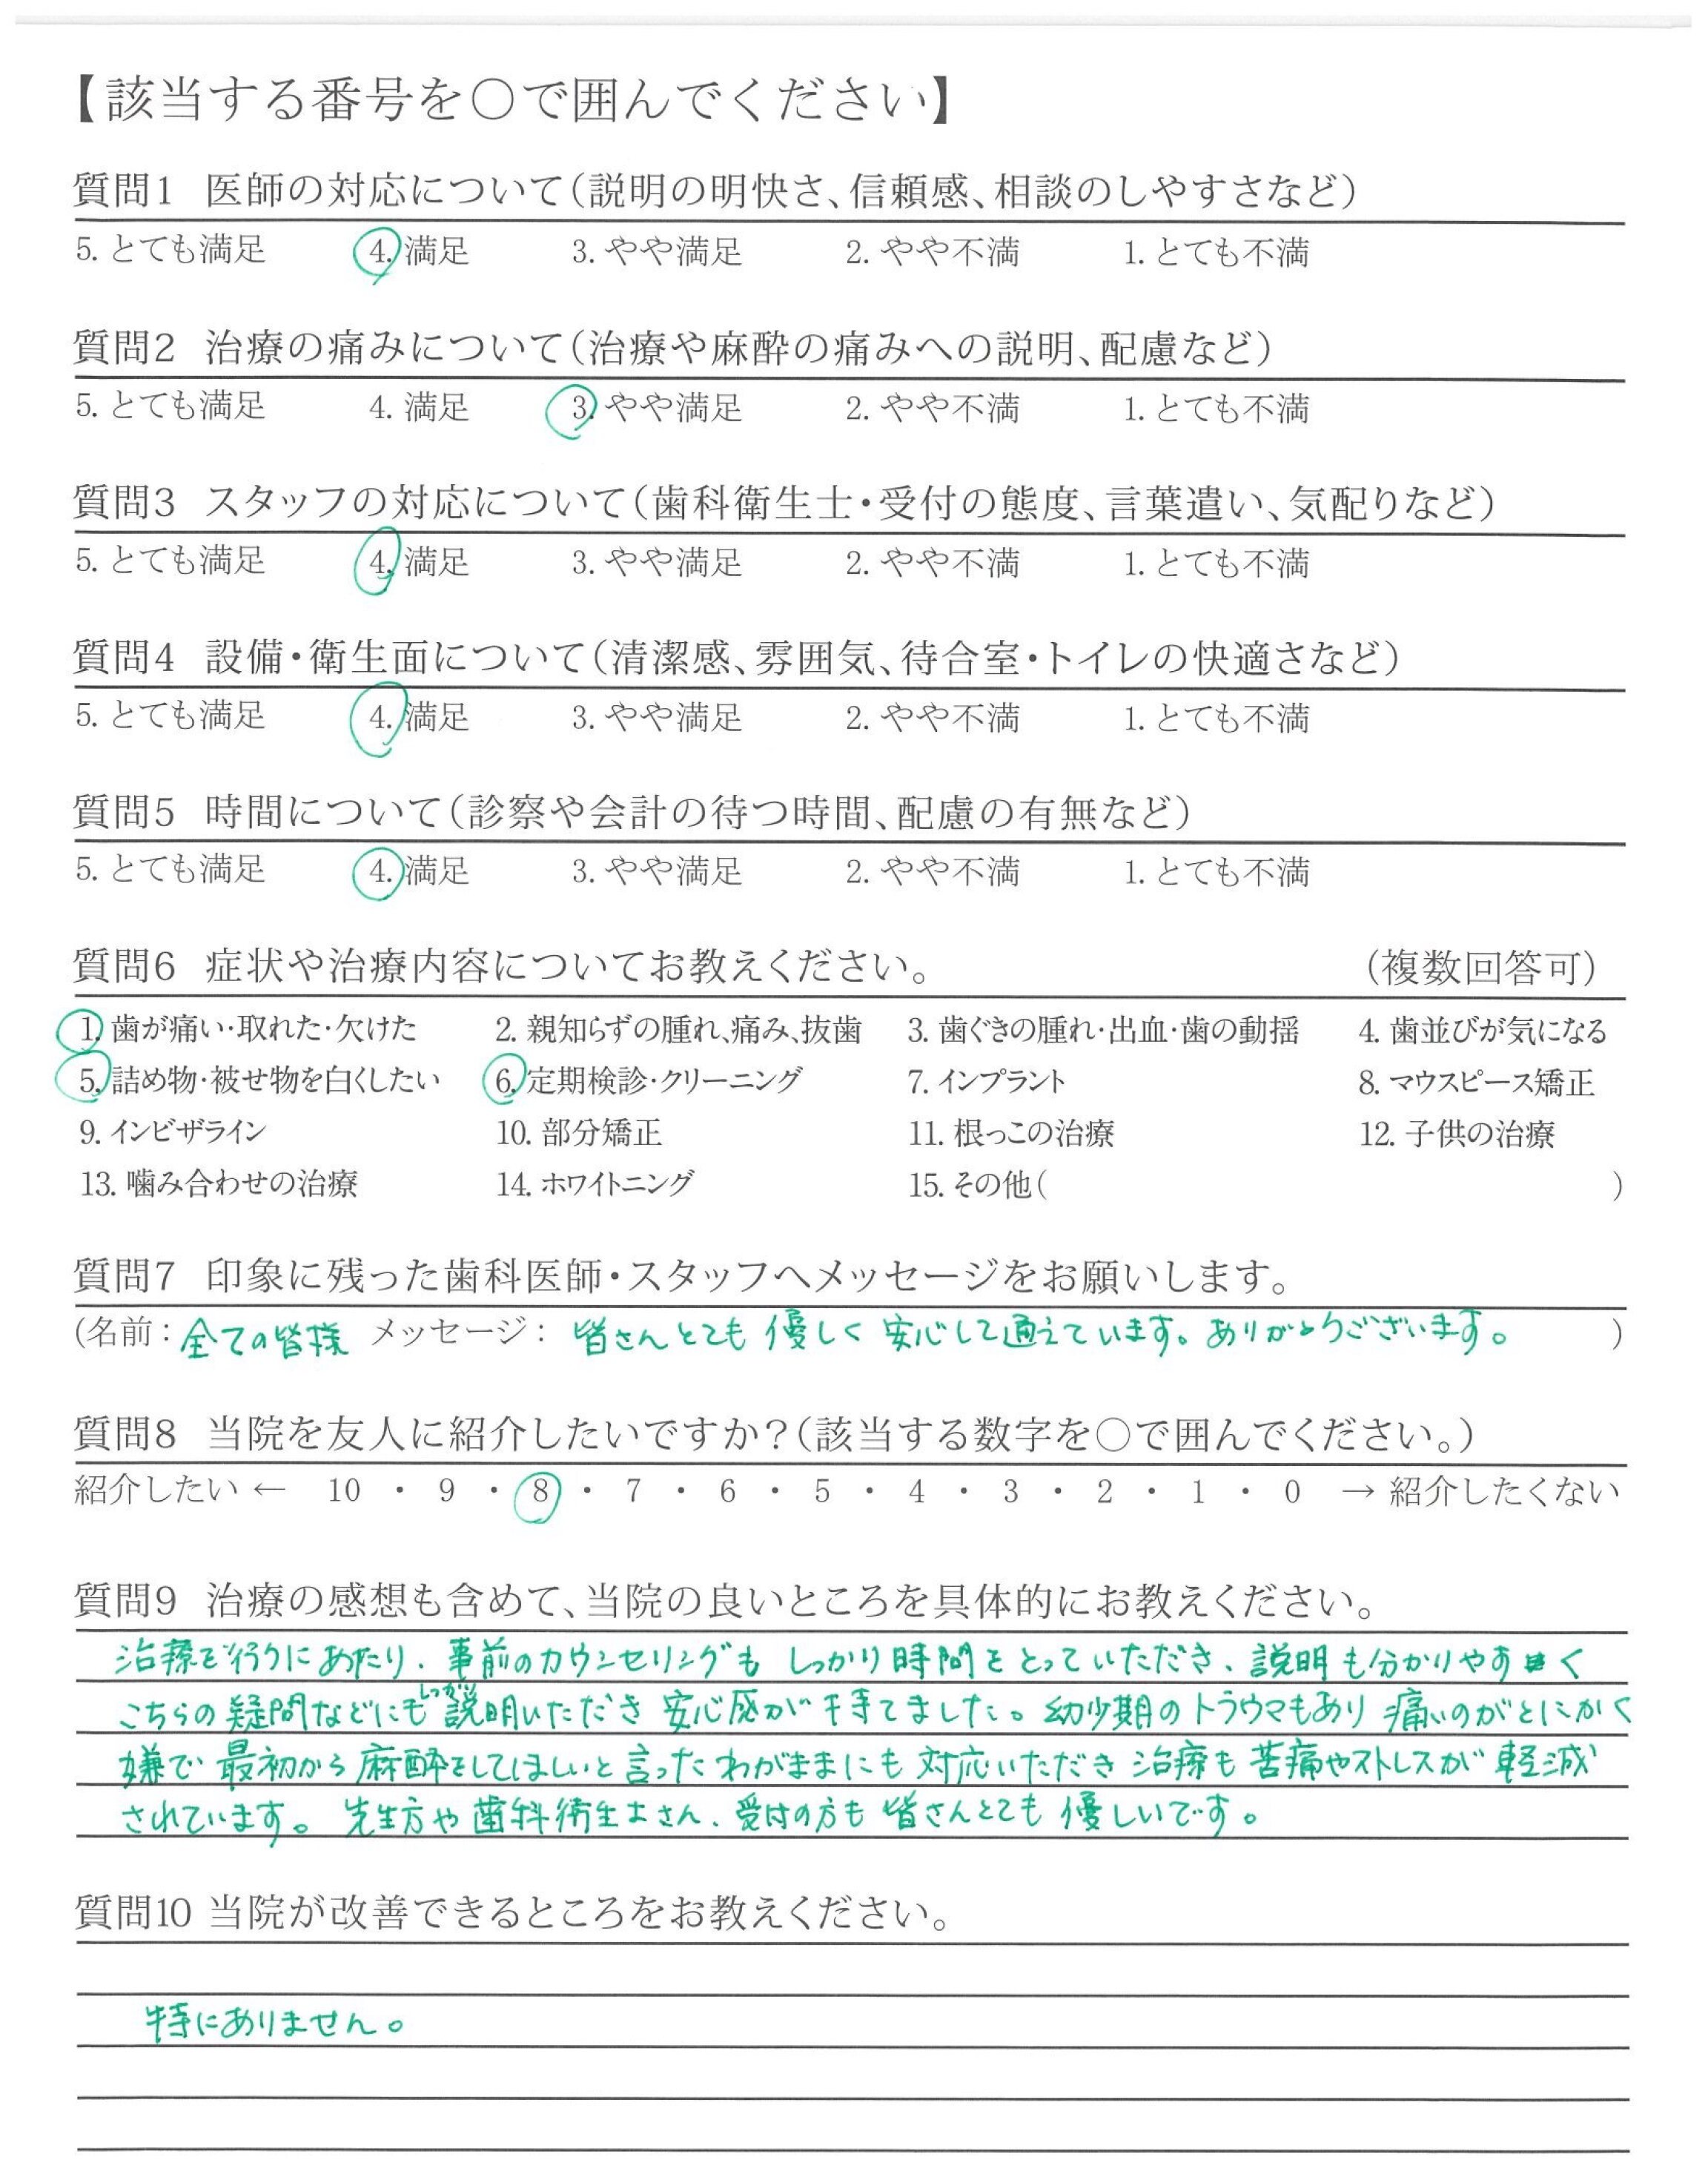 【該当する番号を○で囲んでください】
質問1 医師の対応について（説明の明快さ、信頼感、相談のしやすさなど）
5. とても満足 4. 満足 3. やや満足 2. やや不満 1. とても不満
質問2 治療の痛みについて（治療や麻酔の痛みへの説明、配慮など）
5. とても満足 4. 満足 3. やや満足 2. やや不満 1. とても不満
質問3 スタッフの対応について（歯科衛生士・受付の態度、言葉遣い、気配りなど）
5. とても満足 4. 満足 3. やや満足 2. やや不満 1. とても不満
質問4 設備・衛生面について（清潔感、雰囲気、待合室・トイレの快適さなど）
5. とても満足 4. 満足 3. やや満足 2. やや不満 1. とても不満
質問5 時間について（診察や会計の待つ時間、配慮の有無など）
5. とても満足 4. 満足 3. やや満足 2. やや不満 1. とても不満
質問6 症状や治療内容についてお教えください。 （複数回答可）
1. 歯が痛い・取れた・欠けた 2. 親知らずの腫れ、痛み、抜歯 3. 歯ぐきの腫れ・出血・歯の動揺 4. 歯並びが気になる
5. 詰め物・被せ物を白くしたい 6. 定期検診・クリーニング 7. インプラント 8. マウスピース矯正
9. インビザライン 10. 部分矯正 11. 根っこの治療 12. 子供の治療
13. 噛み合わせの治療 14. ホワイトニング 15. その他（ ）
質問7 印象に残った歯科医師・スタッフへメッセージをお願いします。
（名前：全ての皆様 メッセージ：皆さんとても優しく安心して通えています。ありがとうございます。）
質問8 当院を友人に紹介したいですか？（該当する数字を○で囲んでください。）
紹介したい ← 10 ・ 9 ・ 8 ・ 7 ・ 6 ・ 5 ・ 4 ・ 3 ・ 2 ・ 1 ・ 0 → 紹介したくない
質問9 治療の感想も含めて、当院の良いところを具体的にお教えください。
治療を行うにあたり、事前のカウンセリングもしっかり時間をとっていただき、説明も分かりやすく
こちらの疑問などにもしっかり説明いただき安心感が持てました。幼少期のトラウマもあり痛いのがとにかく
嫌で最初から麻酔をしてほしいと言ったわがままにも対応いただき治療も苦痛やストレスが軽減
されています。先生方や歯科衛生士さん、受付の方も皆さんとても優しいです。
質問10 当院が改善できるところをお教えください。
特にありません。